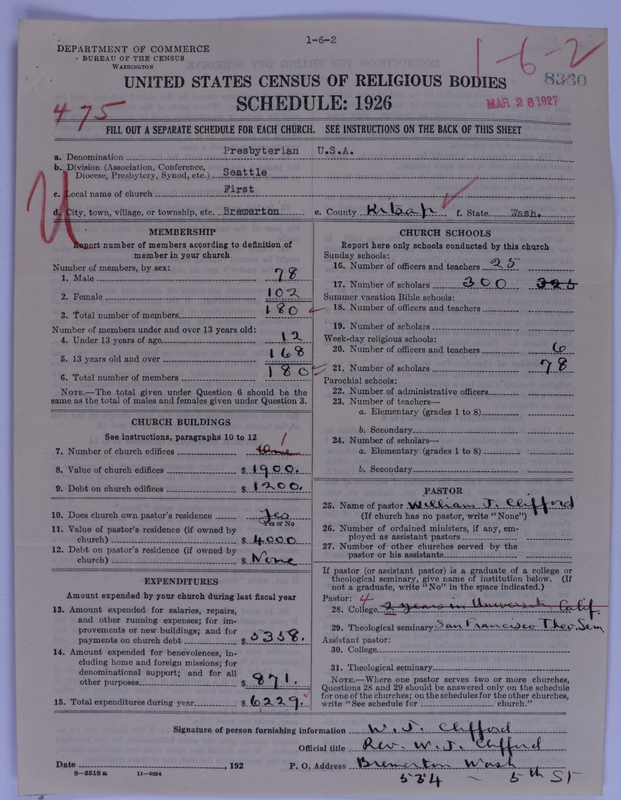 1-6-2
DEPARTMENT OF COMMERCE
BUREAU OF THE CENSUS
WASHINGTON
1-6-2
8330
UNITED STATES CENSUS OF RELIGIOUS BODIES
SCHEDULE: 1926
MAR 28 1927
475
FILL OUT A SEPARATE SCHEDULE FOR EACH CHURCH. SEE INSTRUCTIONS ON THE BACK OF THIS SHEET
a. Denomination Presbyterian U.S.A.
b. Division (Association, Conference, Diocese, Presbytery, Synod, etc.) Seattle
c. Local name of church First
d. City, town, village, or township, etc. Bremerton e. County Kitsap f. State Wash.
U
MEMBERSHIP
Report number of members according to definition of
member in your church
Number of members, by sex:
1. Male 78
2. Female 102
3. Total number of members 180
Number of members under and over 13 years old:
4. Under 13 years of age 12
5. 13 years old and over 168
6. Total number of members 180
NOTE.—The total given under Question 6 should be
the same as the total of males and females given under Question 3.
CHURCH BUILDINGS
See instructions, paragraphs 10 to 12
7. Number of church edifices One 1
8. Value of church edifices $ 1900.
9. Debt on church edifices $ 1200.
10. Does church own pastor's residence Yes
Yes or No
11. Value of pastor's residence (if owned by
church) $ 4000
12. Debt on pastor's residence (if owned by
church) $ None
EXPENDITURES
Amount expended by your church during last fiscal year
13. Amount expended for salaries, repairs,
and other running expenses; for im-
provements or new buildings; and for
payments on church debt $ 5358.
14. Amount expended for benevolences, in-
cluding home and foreign missions; for
denominational support; and for all
other purposes $ 871.
15. Total expenditures during year $ 6229.
CHURCH SCHOOLS
Report here only schools conducted by this church
Sunday schools:
16. Number of officers and teachers 25
17. Number of scholars 300 325
Summer vacation Bible schools:
18. Number of officers and teachers
19. Number of scholars
Week-day religious schools:
20. Number of officers and teachers 6
21. Number of scholars 78
Parochial schools:
22. Number of administrative officers
23. Number of teachers—
a. Elementary (grades 1 to 8)
b. Secondary
24. Number of scholars—
a. Elementary (grades 1 to 8)
b. Secondary
PASTOR
25. Name of pastor William J. Clifford
(If church has no pastor, write "None")
26. Number of ordained ministers, if any, em-
ployed as assistant pastors
27. Number of other churches served by the
pastor or his assistants
If pastor (or assistant pastor) is a graduate of a college or
theological seminary, give name of institution below. (If
not a graduate, write "No" in the space indicated.)
Pastor: 4
28. College 2 years in University Calif.
29. Theological seminary San Francisco Theo. Sem
Assistant pastor:
30. College
31. Theological seminary
NOTE.—Where one pastor serves two or more churches,
Questions 28 and 29 should be answered only on the schedule
for one of the churches; on the schedules for the other churches,
write "See schedule for church."
Signature of person furnishing information W. J. Clifford
Official title Rev. W. J. Clifford
Date , 192 P. O. Address Bremerton Wash
8-5518a 11-9054 534 - 5th St